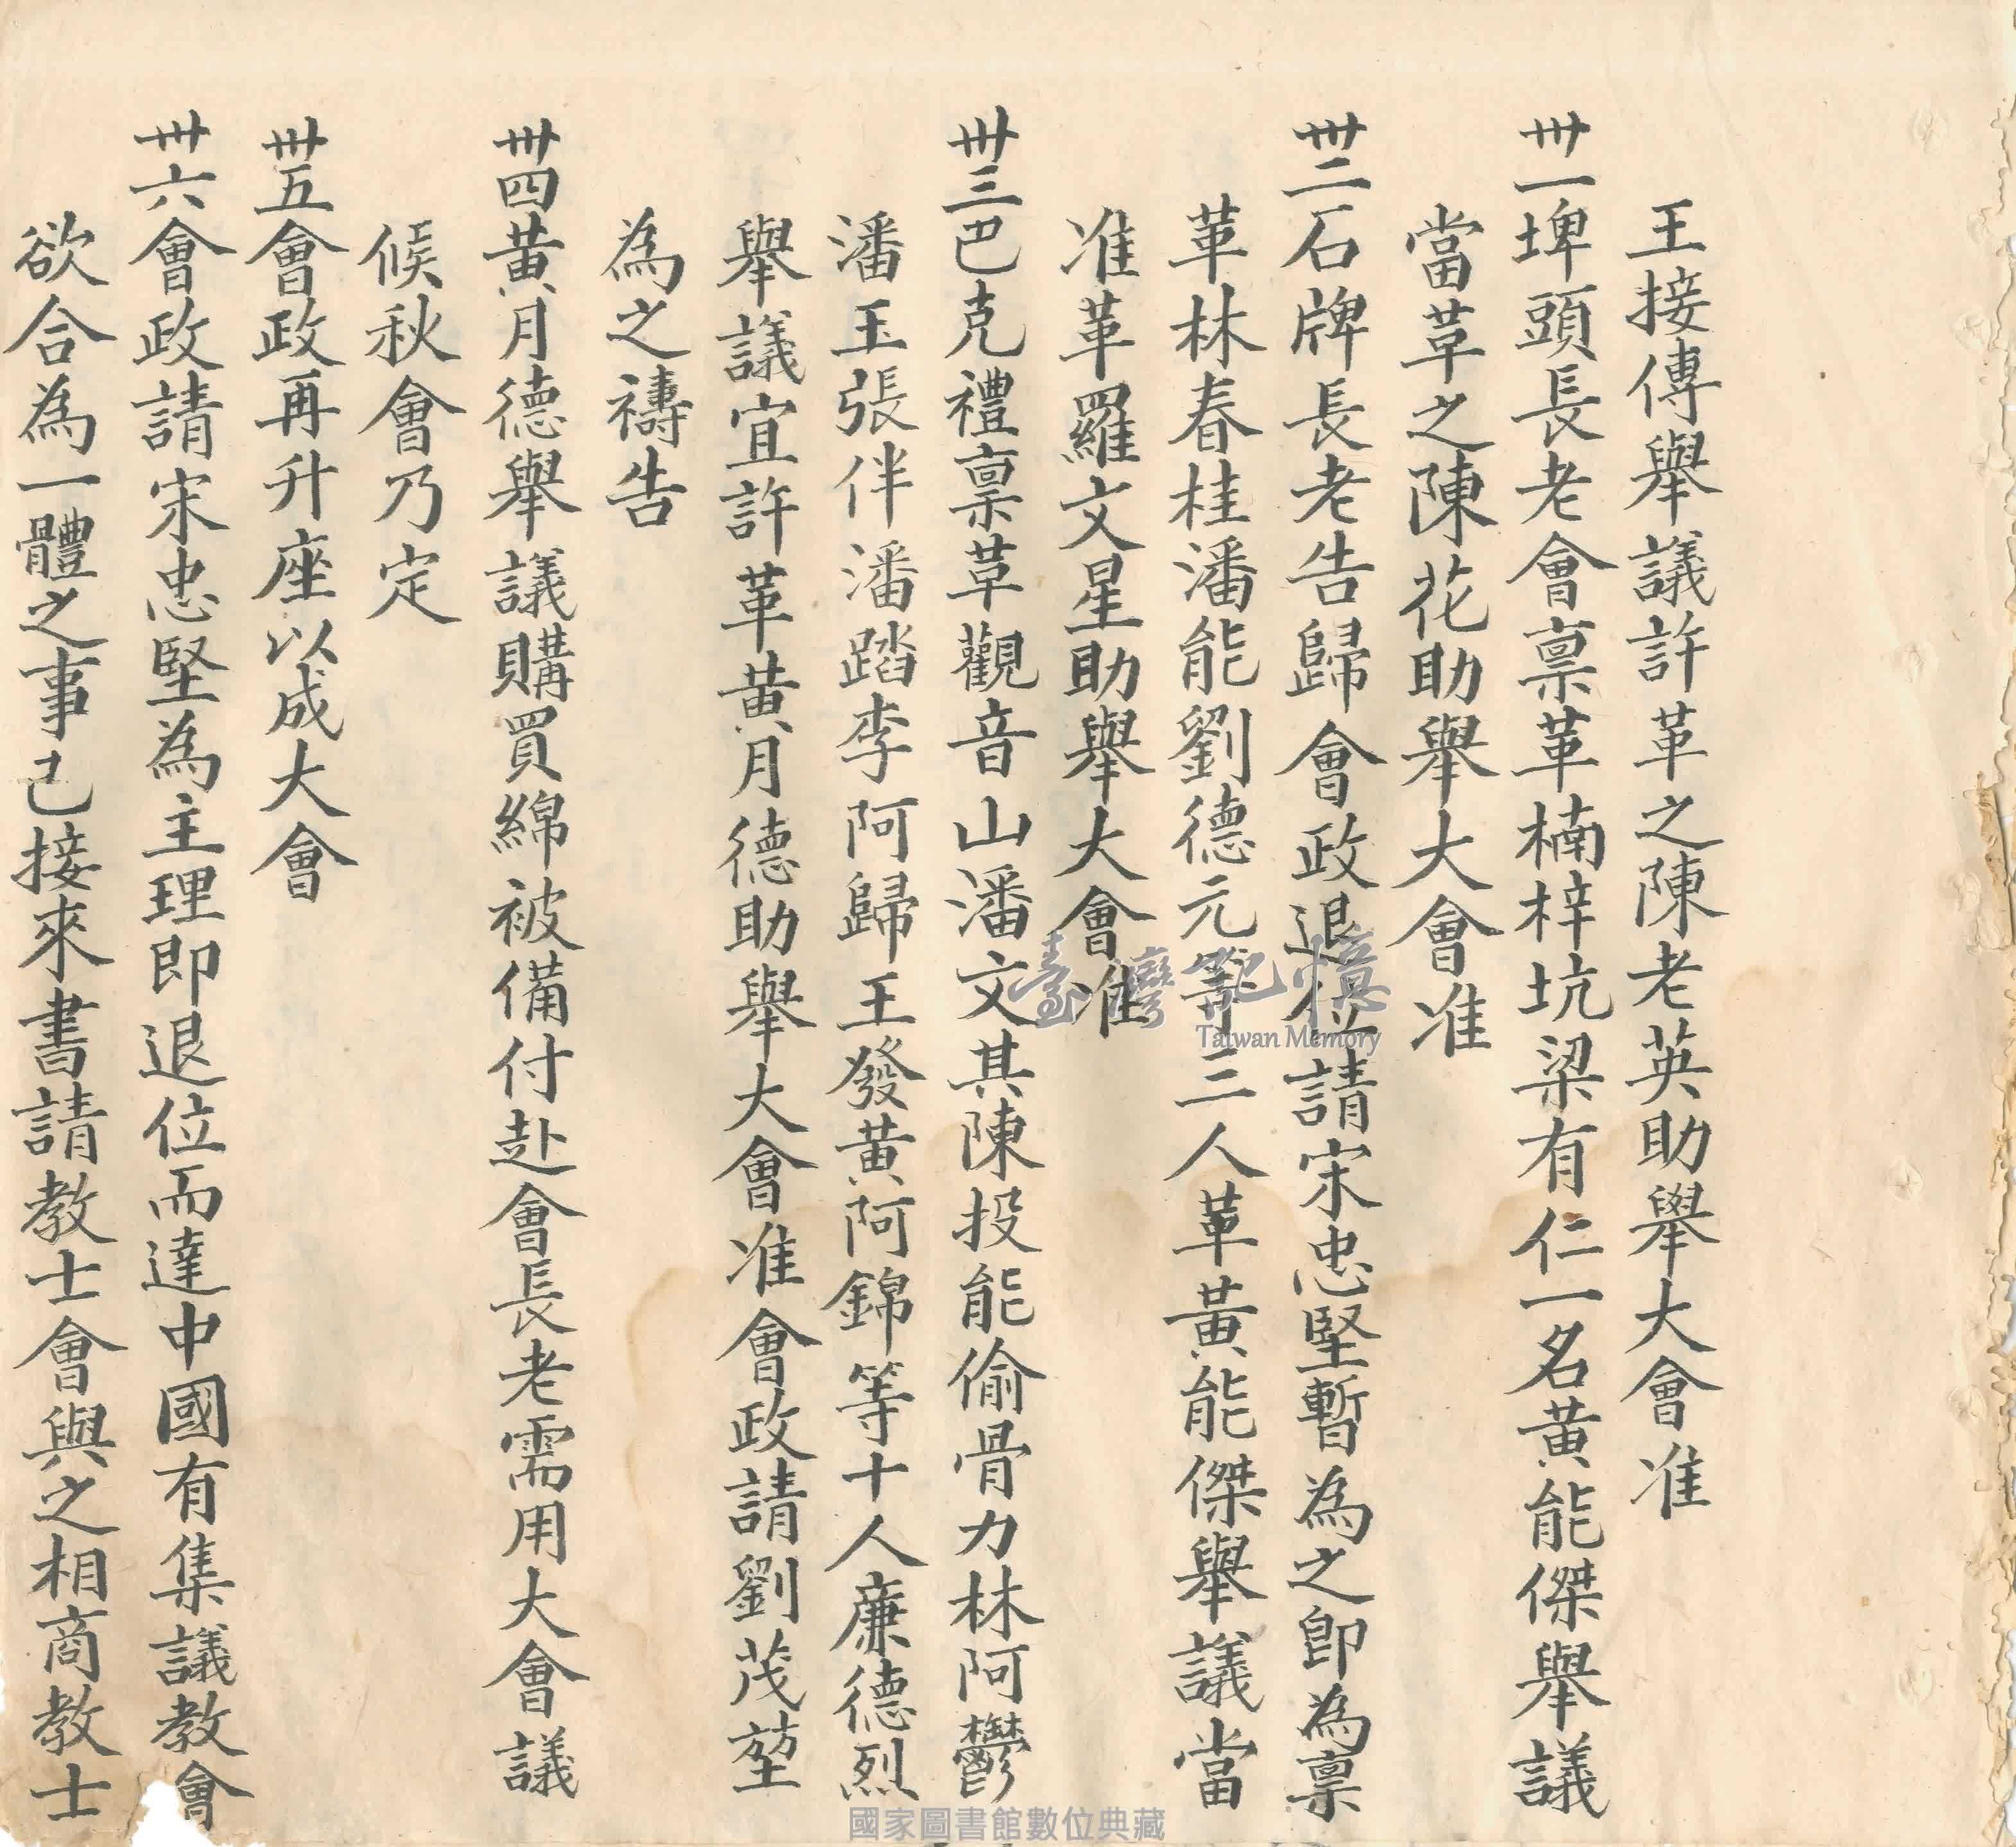 王接傳舉議許革之陳老英助舉大會准
卅一埤頭長老會禀革楠梓坑梁有仁一名黃能傑舉議
當革之陳花助舉大會准
卅二石牌長老告歸會政退位請宋忠堅暫為之卽為禀
革林春桂潘能劉德元等三人革黃能傑舉議當
准革羅文星助舉大會准
卅三巴克禮禀革觀音山潘文其陳投能偷骨力林阿鬱
潘玉張伴潘踏李阿歸王發黃阿錦等十人廉德烈
舉議宜許革黃月德助舉大會准會政請劉茂堃
為之禱告
卅四黃月德舉議購買綿被備付赴會長老需用大會議
候秋會乃定
卅五會政再升座以成大會
卅六會政請宋忠堅為主理即退位而達中國有集議教會
欲合為一體之事已接來書請教士會與之相商教士
臺灣記憶
Taiwan Memory
國家圖書館數位典藏